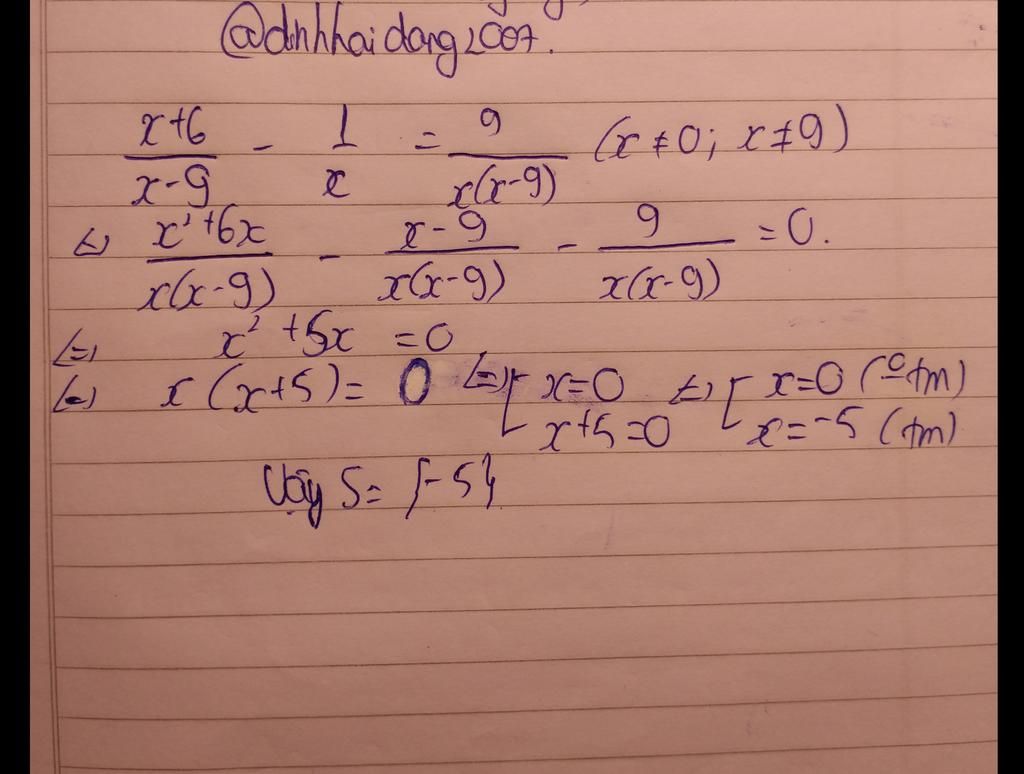 @dinhhaidang2007.
x+6/x-9 - 1/x = 9/x(x-9) (x≠0; x≠9)
⇔ x²+6x/x(x-9) - x-9/x(x-9) - 9/x(x-9) = 0.
⇔ x² +5x = 0
⇔ x(x+5) = 0 ⇔ [x=0 x+5=0 ⇔ [x=0 (ºtm) x=-5 (tm)
Vậy S= {-5}